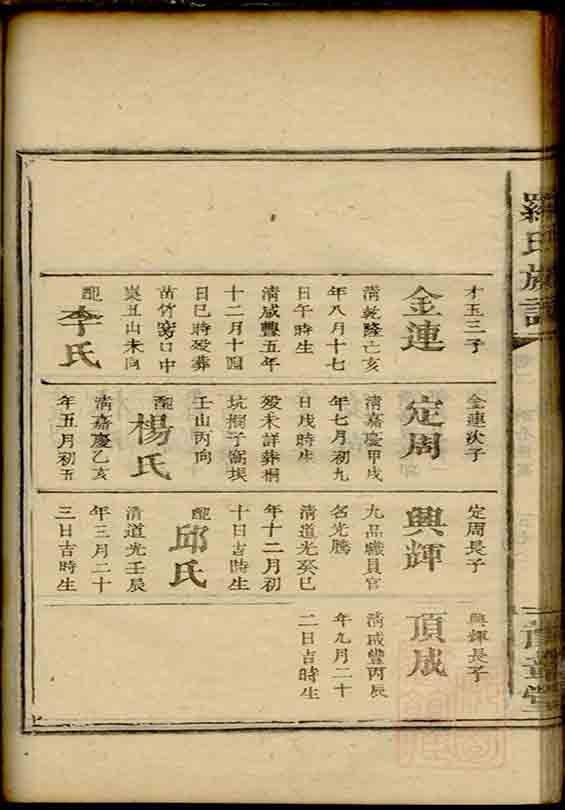 羅氏族譜
豫章堂
才玉三子
金連
清乾隆己亥
年八月十七
日午時生
清咸豐五年
十二月十四
日巳時殁葬
苗竹窩口中
嶺丑山未向
配
李氏
金連次子
定周
清嘉慶甲戌
年七月初九
日戌時生
殁未詳葬桐
坑搁子窩坟
壬山丙向
配
楊氏
清嘉慶乙亥
年五月初五
定周長子
興輝
九品職員官
名光騰
清道光癸巳
年十二月初
十日吉時生
配
邱氏
清道光壬辰
年三月二十
三日吉時生
興輝長子
頂成
清咸豐丙辰
年九月二十
二日吉時生